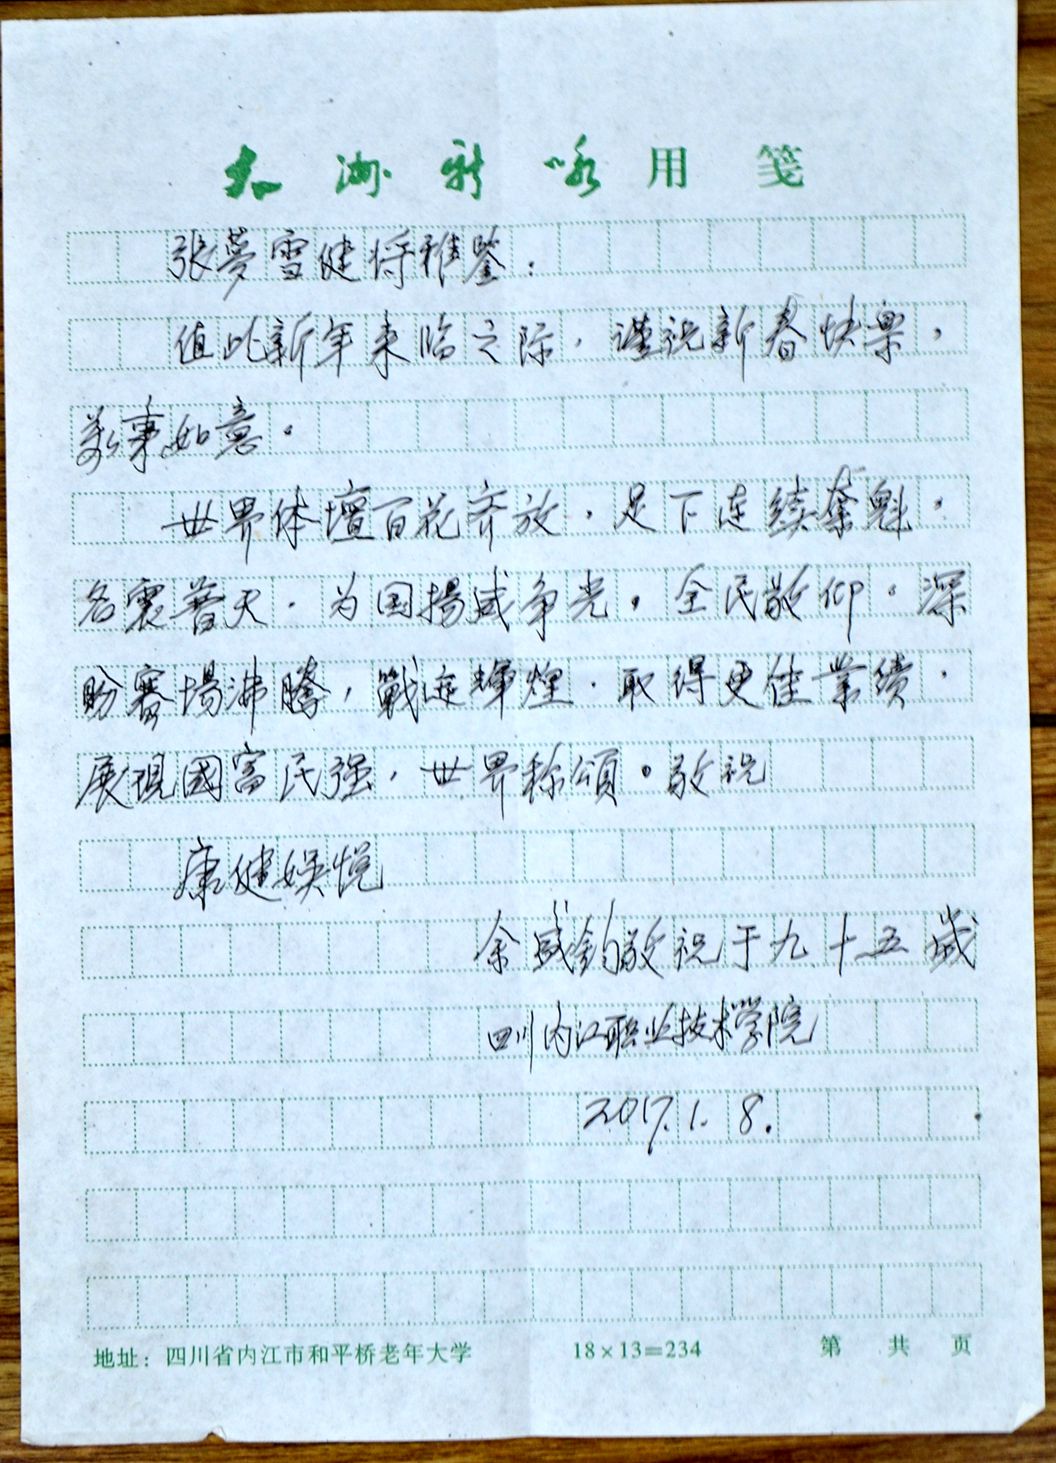 大洲新咏用笺
张夢雪健将雅鉴：
值此新年来临之际，谨祝新春快樂，
万事如意。
世界体壇百花齐放，足下连续夺魁，
名震普天，为国揚威争光，全民敬仰。深
盼赛場沸騰，戰迹輝煌，取得更佳業績，
展現國富民强，世界称頌。敬祝
康健娱悦
余盛鈞敬祝于九十五歲
四川内江职业技术學院
2017.1.8.
地址：四川省内江市和平桥老年大学 18×13=234 第 共 页